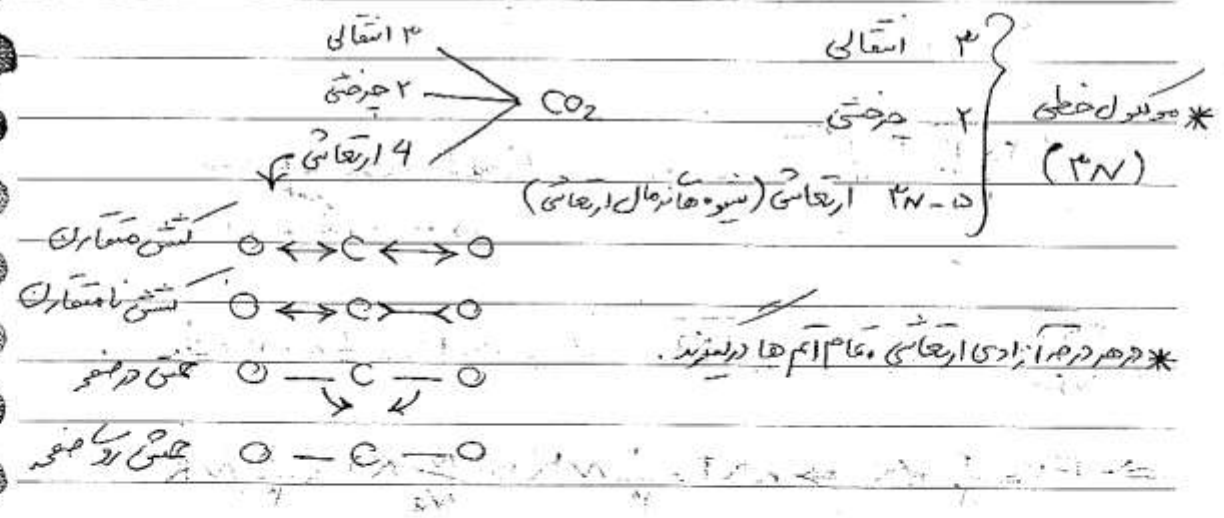 * مولکول خطی (۳N)
۳ انتقالی
۲ چرخشی
۳N - ۵ ارتعاشی (شیوه های نرمال ارتعاشی)
CO₂
۳ انتقالی
۲ چرخشی
4 ارتعاشی
O ↔ C ↔ O کشش متقارن
O ↔ C >—< O کشش نامتقارن
O — C — O خمش در صفحه
O — C — O خمش صفحه
* در هر درجه آزادی ارتعاشی، تمام اتم ها درلغزند.